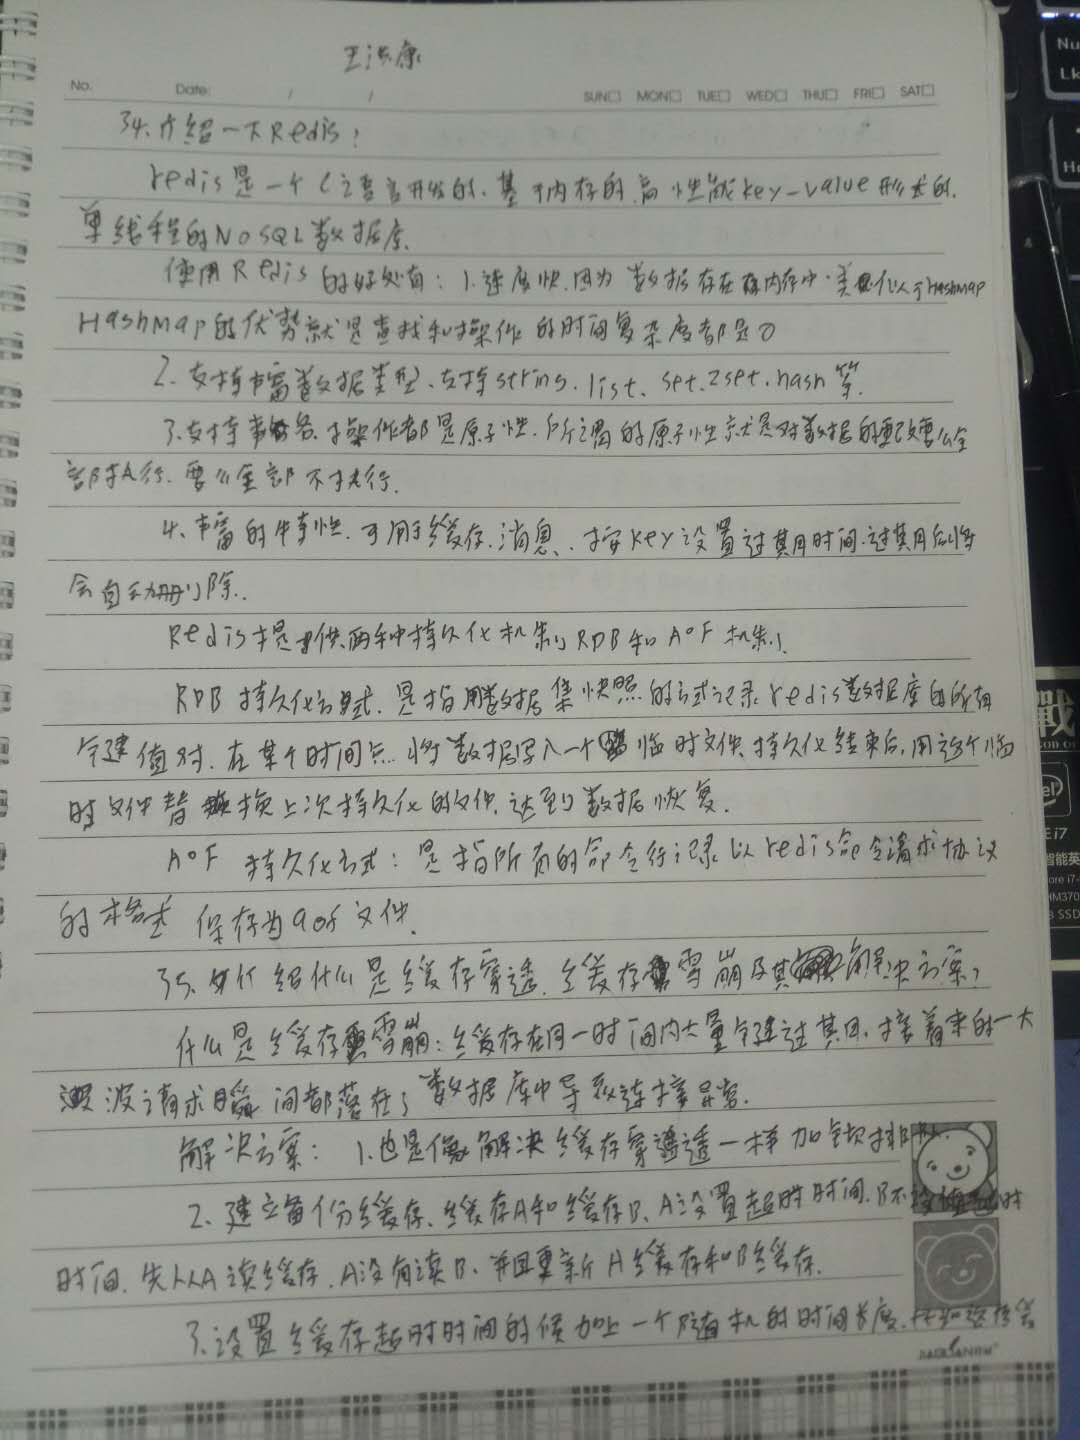 王洪康
No.
Date: / /
SUN□ MON□ TUE□ WED□ THU□ FRI□ SAT□
Nu
Lk
34、介绍一下Redis?
redis是一个C语言开发的、基于内存的高性能key-value形式的、
单线程的NoSQL数据库.
使用Redis的好处有:1.速度快,因为数据存在内存中.类似于HashMap
HashMap的优势就是查找和操作的时间复杂度都是O
2、支持丰富数据类型、支持string、list、set、zset、hash等.
3.支持事务,操作都是原子性,所谓的原子性就是对数据的更改要么全
部执行,要么全部不执行.
4、丰富的特性:可用于缓存、消息、按key设置过期时间.过期后将
会自动删除.
Redis提供两种持久化机制RDB和AOF机制,
RDB持久化方式:是指用数据集快照的方式记录redis数据库的所有
键值对,在某个时间点将数据写入一个临时文件,持久化结束后,用这个临
时文件替换上次持久化的文件,达到数据恢复.
AOF持久化方式:是指所有的命令行记录以redis命令请求协议
的格式保存为aof文件.
35、介绍什么是缓存穿透、缓存雪崩及其解决方案?
什么是缓存雪崩:缓存在同一时间内大量键过期,接着来的一大
波请求瞬间都落在了数据库中导致连接异常.
解决方案:1.也是像解决缓存穿透一样加锁排队.
2、建立备份缓存、缓存A和缓存B、A设置超时时间,B不设值超时
时间,先从A读缓存,A没有读B、并且更新A缓存和B缓存.
3.设置缓存超时时间的候加上一个随机的时间长度,
戰
intel
i7
智能英
ore i7-
HM370
B SSD